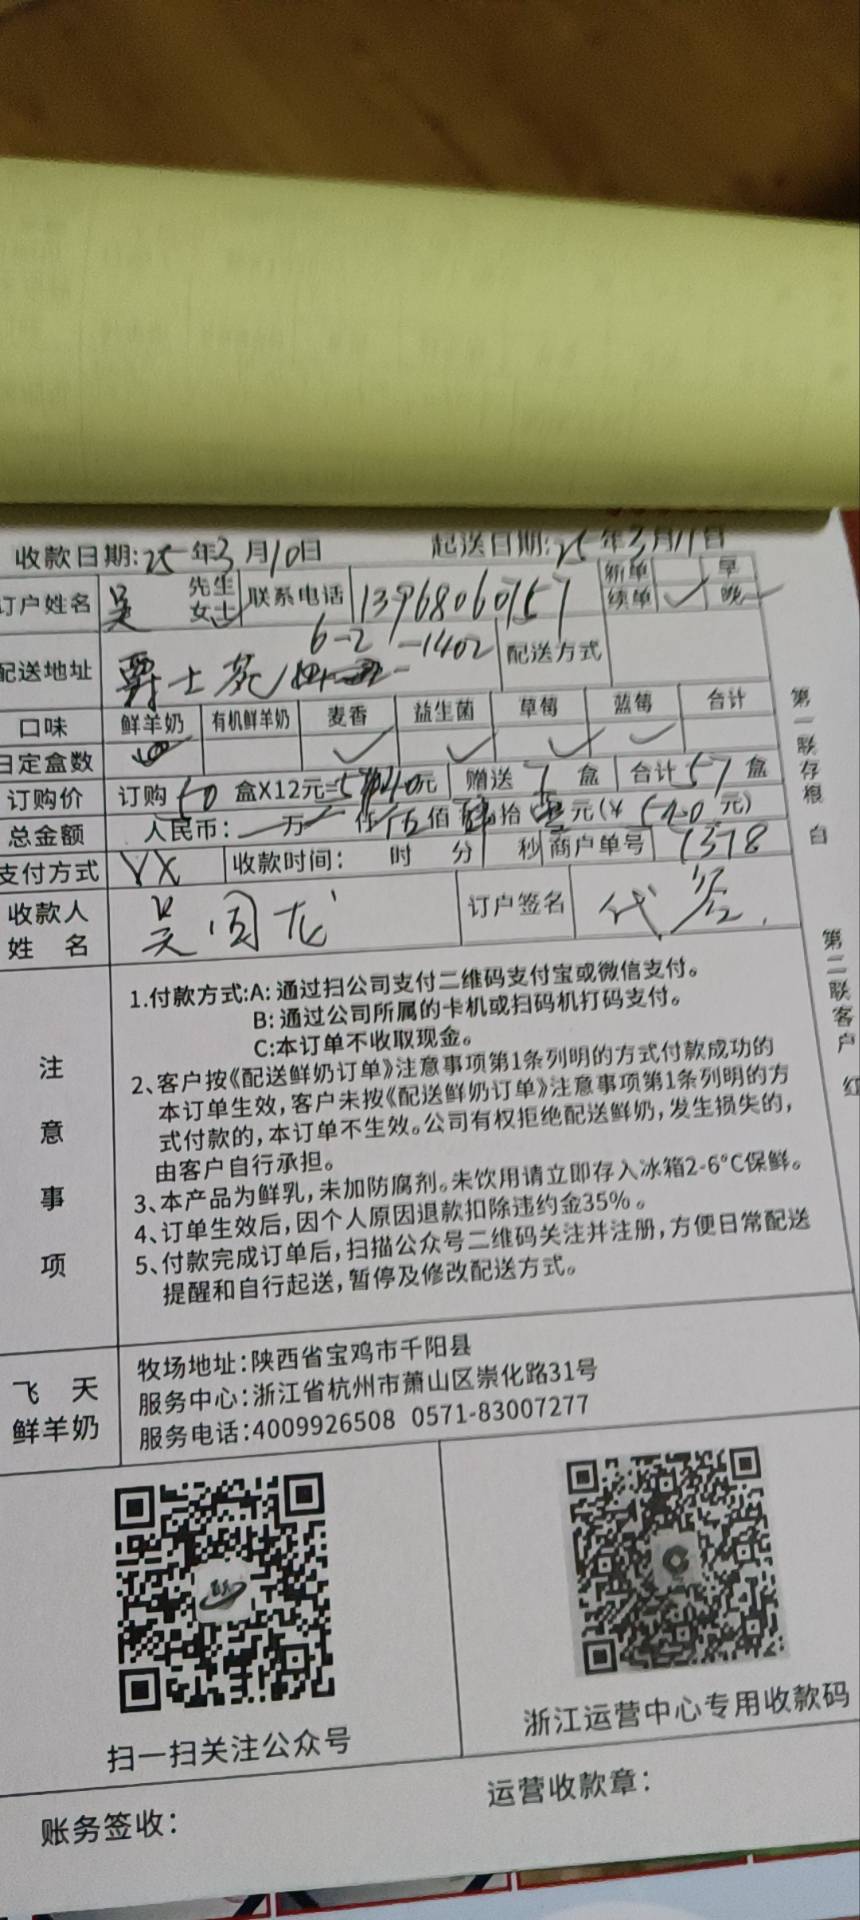 收款日期:25年3月10日 起送日期:25年3月11日
订户姓名 吴 先生 女士 联系电话 13968060157 新单 早
续单 ✓ 晚 ✓
6-2-1402
配送地址 爵士苑 配送方式
口味 鲜羊奶 有机鲜羊奶 麦香 益生菌 草莓 蓝莓 合计
日定盒数 ✓ ✓ ✓ ✓
订购价 订购50盒X12元= 元 赠送7盒 合计57盒
总金额 人民币: 万 仟伍佰 拾 元(¥ 元)
支付方式 VX 收款时间: 时 分 秒 商户单号 1378
收款人姓名 吴 龙 订户签名 代签
注意事项
1.付款方式:A:通过扫公司支付二维码支付宝或微信支付。
B:通过公司所属的卡机或扫码机打码支付。
C:本订单不收取现金。
2、客户按《配送鲜奶订单》注意事项第1条列明的方式付款成功的
本订单生效,客户未按《配送鲜奶订单》注意事项第1条列明的方
式付款的,本订单不生效。公司有权拒绝配送鲜奶,发生损失的,
由客户自行承担。
3、本产品为鲜乳,未加防腐剂。未饮用请立即存入冰箱2-6°C保鲜。
4、订单生效后,因个人原因退款扣除违约金35%。
5、付款完成订单后,扫描公众号二维码关注并注册,方便日常配送
提醒和自行起送,暂停及修改配送方式。
飞天
鲜羊奶
牧场地址:陕西省宝鸡市千阳县
服务中心:浙江省杭州市萧山区崇化路31号
服务电话:4009926508 0571-83007277
扫一扫关注公众号
浙江运营中心专用收款码
账务签收:
运营收款章:
第一联存根 白
第二联客户 红